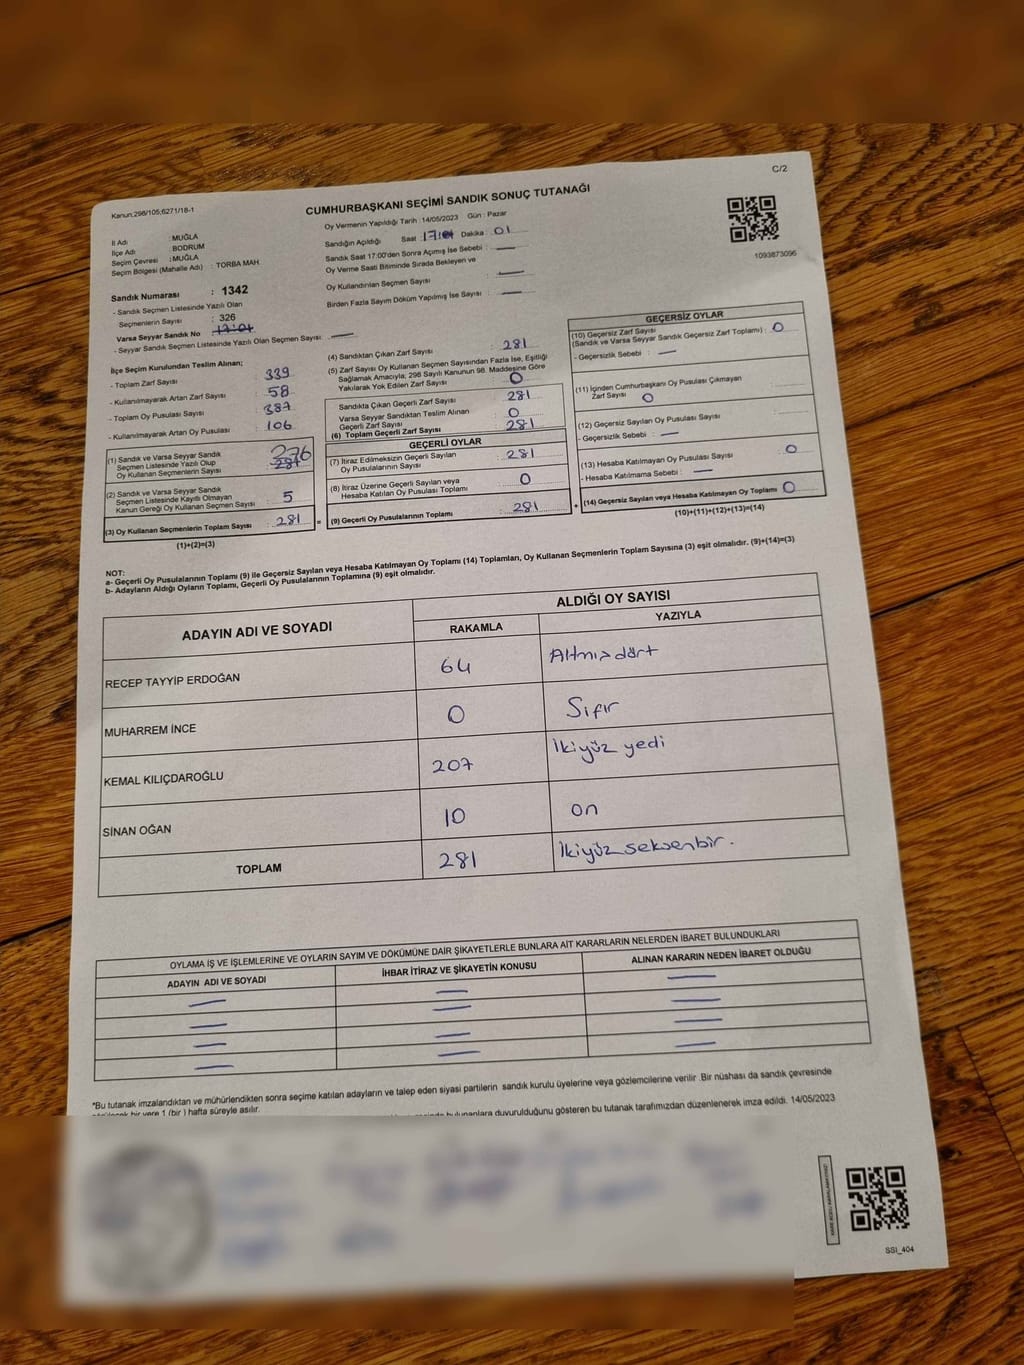 C/2
Kanun:298/105;6271/18-1
CUMHURBAŞKANI SEÇİMİ SANDIK SONUÇ TUTANAĞI
Oy Vermenin Yapıldığı Tarih : 14/05/2023 Gün : Pazar
İl Adı : MUĞLA
İlçe Adı : BODRUM
Seçim Çevresi : MUĞLA
Seçim Bölgesi (Mahalle Adı) : TORBA MAH.
Sandığın Açıldığı Saat 17:01 Dakika 01
Sandık Saat 17:00'den Sonra Açılmış İse Sebebi : —
Oy Verme Saati Bitiminde Sırada Bekleyen ve
Oy Kullandırılan Seçmen Sayısı : —
Birden Fazla Sayım Döküm Yapılmış İse Sayısı : —
1093873096
Sandık Numarası : 1342
- Sandık Seçmen Listesinde Yazılı Olan
Seçmenlerin Sayısı : 326
Varsa Seyyar Sandık No 17:01
- Seyyar Sandık Seçmen Listesinde Yazılı Olan Seçmen Sayısı : —
İlçe Seçim Kurulundan Teslim Alınan;
- Toplam Zarf Sayısı : 339
- Kullanılmayarak Artan Zarf Sayısı : 58
- Toplam Oy Pusulası Sayısı : 387
- Kullanılmayarak Artan Oy Pusulası : 106
(1) Sandık ve Varsa Seyyar Sandık
Seçmen Listesinde Yazılı Olup
Oy Kullanan Seçmenlerin Sayısı : 281 276
(2) Sandık ve Varsa Seyyar Sandık
Seçmen Listesinde Kayıtlı Olmayan
Kanun Gereği Oy Kullanan Seçmen Sayısı : 5
(3) Oy Kullanan Seçmenlerin Toplam Sayısı : 281
(1)+(2)=(3)
(4) Sandıktan Çıkan Zarf Sayısı : 281
(5) Zarf Sayısı Oy Kullanan Seçmen Sayısından Fazla İse, Eşitliği
Sağlamak Amacıyla, 298 Sayılı Kanunun 98. Maddesine Göre
Yakılarak Yok Edilen Zarf Sayısı : 0
Sandıkta Çıkan Geçerli Zarf Sayısı : 281
Varsa Seyyar Sandıktan Teslim Alınan
Geçerli Zarf Sayısı : 0
(6) Toplam Geçerli Zarf Sayısı : 281
GEÇERLİ OYLAR
(7) İtiraz Edilmeksizin Geçerli Sayılan
Oy Pusulalarının Sayısı : 281
(8) İtiraz Üzerine Geçerli Sayılan veya
Hesaba Katılan Oy Pusulası Toplamı : 0
(9) Geçerli Oy Pusulalarının Toplamı : 281
GEÇERSİZ OYLAR
(10) Geçersiz Zarf Sayısı
(Sandık ve Varsa Seyyar Sandık Geçersiz Zarf Toplamı) : 0
- Geçersizlik Sebebi : —
(11) İçinden Cumhurbaşkanı Oy Pusulası Çıkmayan
Zarf Sayısı : 0
(12) Geçersiz Sayılan Oy Pusulası Sayısı :
- Geçersizlik Sebebi : —
(13) Hesaba Katılmayan Oy Pusulası Sayısı : 0
- Hesaba Katılmama Sebebi : —
(14) Geçersiz Sayılan veya Hesaba Katılmayan Oy Toplamı : 0
(10)+(11)+(12)+(13)=(14)
NOT:
a- Geçerli Oy Pusulalarının Toplamı (9) ile Geçersiz Sayılan veya Hesaba Katılmayan Oy Toplamı (14) Toplamları, Oy Kullanan Seçmenlerin Toplam Sayısına (3) eşit olmalıdır. (9)+(14)=(3)
b- Adayların Aldığı Oyların Toplamı, Geçerli Oy Pusulalarının Toplamına (9) eşit olmalıdır.
ADAYIN ADI VE SOYADI
ALDIĞI OY SAYISI
RAKAMLA YAZIYLA
RECEP TAYYİP ERDOĞAN 64 Altmışdört
MUHARREM İNCE 0 Sıfır
KEMAL KILIÇDAROĞLU 207 İkiyüz yedi
SİNAN OĞAN 10 on
TOPLAM 281 İkiyüz seksenbir.
OYLAMA İŞ VE İŞLEMLERİNE VE OYLARIN SAYIM VE DÖKÜMÜNE DAİR ŞİKAYETLERLE BUNLARA AİT KARARLARIN NELERDEN İBARET BULUNDUKLARI
ADAYIN ADI VE SOYADI İHBAR İTİRAZ VE ŞİKAYETİN KONUSU ALINAN KARARIN NEDEN İBARET OLDUĞU
*Bu tutanak imzalandıktan ve mühürlendikten sonra seçime katılan adayların ve talep eden siyasi partilerin sandık kurulu üyelerine veya gözlemcilerine verilir. Bir nüshası da sandık çevresinde
bir yere 1 (bir) hafta süreyle asılır.
bulunanlara duyurulduğunu gösteren bu tutanak tarafımızdan düzenlenerek imza edildi. 14/05/2023
SSI_404